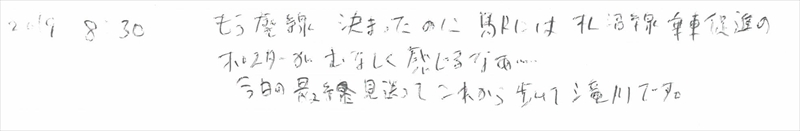 2019 8 30 もう廃線 決まったのに 駅には 札沼線 乗車促進の
ポスターが むなしく 感じるなあ……
今日の最終見送って これから 歩いて 滝川です。